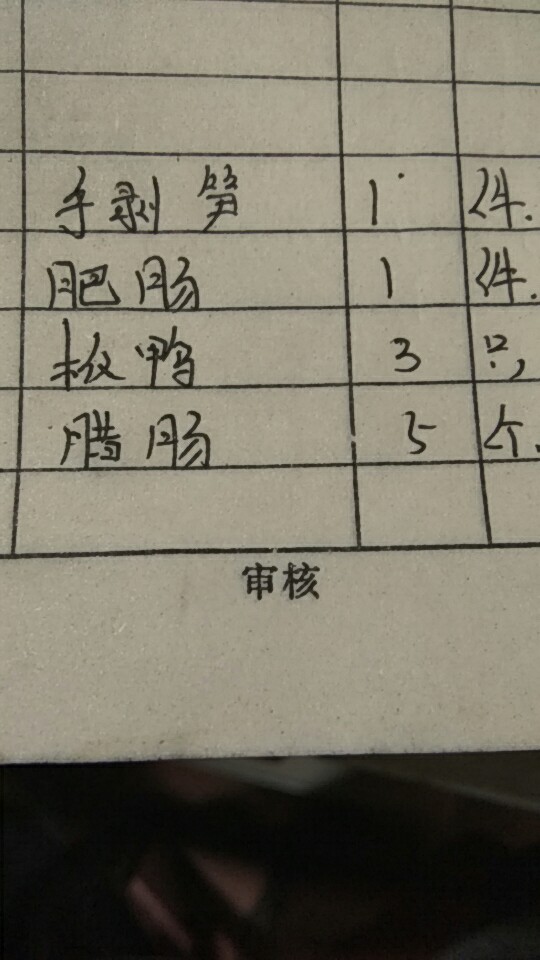 手剥笋 1 件.
肥肠 1 件.
板鸭 3 只,
腊肠 5 个.
审核